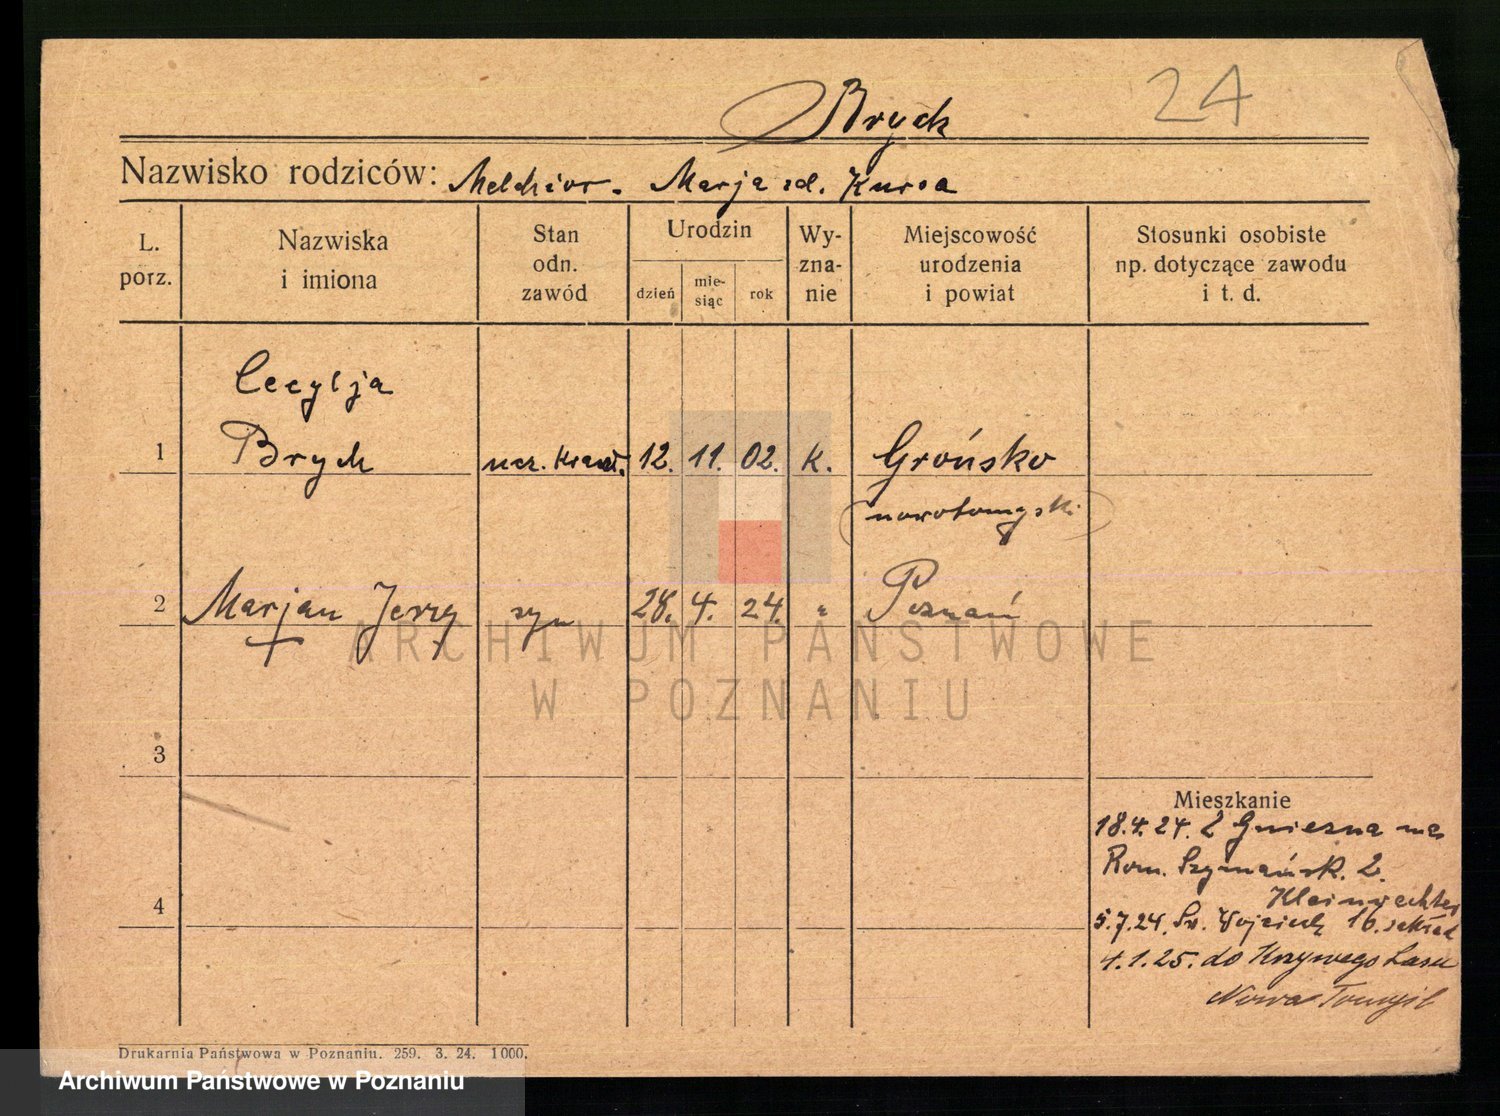 24
Brych
Nazwisko rodziców: Melchior. Marja zd. Kursa
L. porz.
Nazwiska i imiona
Stan odn. zawód
Urodzin
dzień
mie-
siąc
rok
Wy-
zna-
nie
Miejscowość urodzenia i powiat
Stosunki osobiste
np. dotyczące zawodu
i t. d.
Cecylja
1 Brych ucz. kraw. 12. 11. 02. k. Grońsko
(nowotomyski)
2 Marjan Jerzy syn 28. 4. 24. " Poznań
ARCHIWUM PAŃSTWOWE
W POZNANIU
3
Mieszkanie
18.4.24. z Gniezna
Rom. Szymańsk. 2.
4
Kleinwechter
5.7.24. Św. Wojciech 16. zakład
4.1.25. do Krzywego Lasu
Nowa Tomyśl
Drukarnia Państwowa w Poznaniu. 259. 3. 24. 1000.
Archiwum Państwowe w Poznaniu